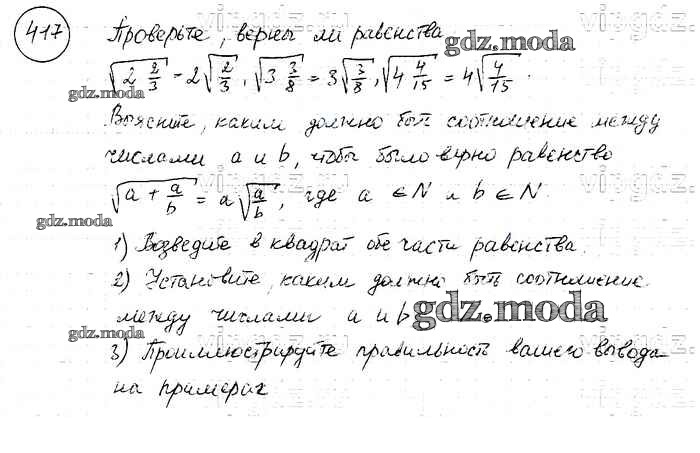 417 Проверьте, верны ли равенства
gdz.moda
√(2 2/3) = 2√(2/3), √(3 3/8) = 3√(3/8), √(4 4/15) = 4√(4/15).
gdz.moda
Выясните, каким должно быть соотношение между
числами a и b, чтобы было верно равенство
√(a + a/b) = a√(a/b), где a ∈ N и b ∈ N.
gdz.moda
1) Возведите в квадрат обе части равенства.
2) Установите, каким должно быть соотношение
между числами a и b
gdz.moda
gdz.moda
3) Проиллюстрируйте правильность вашего вывода
на примерах